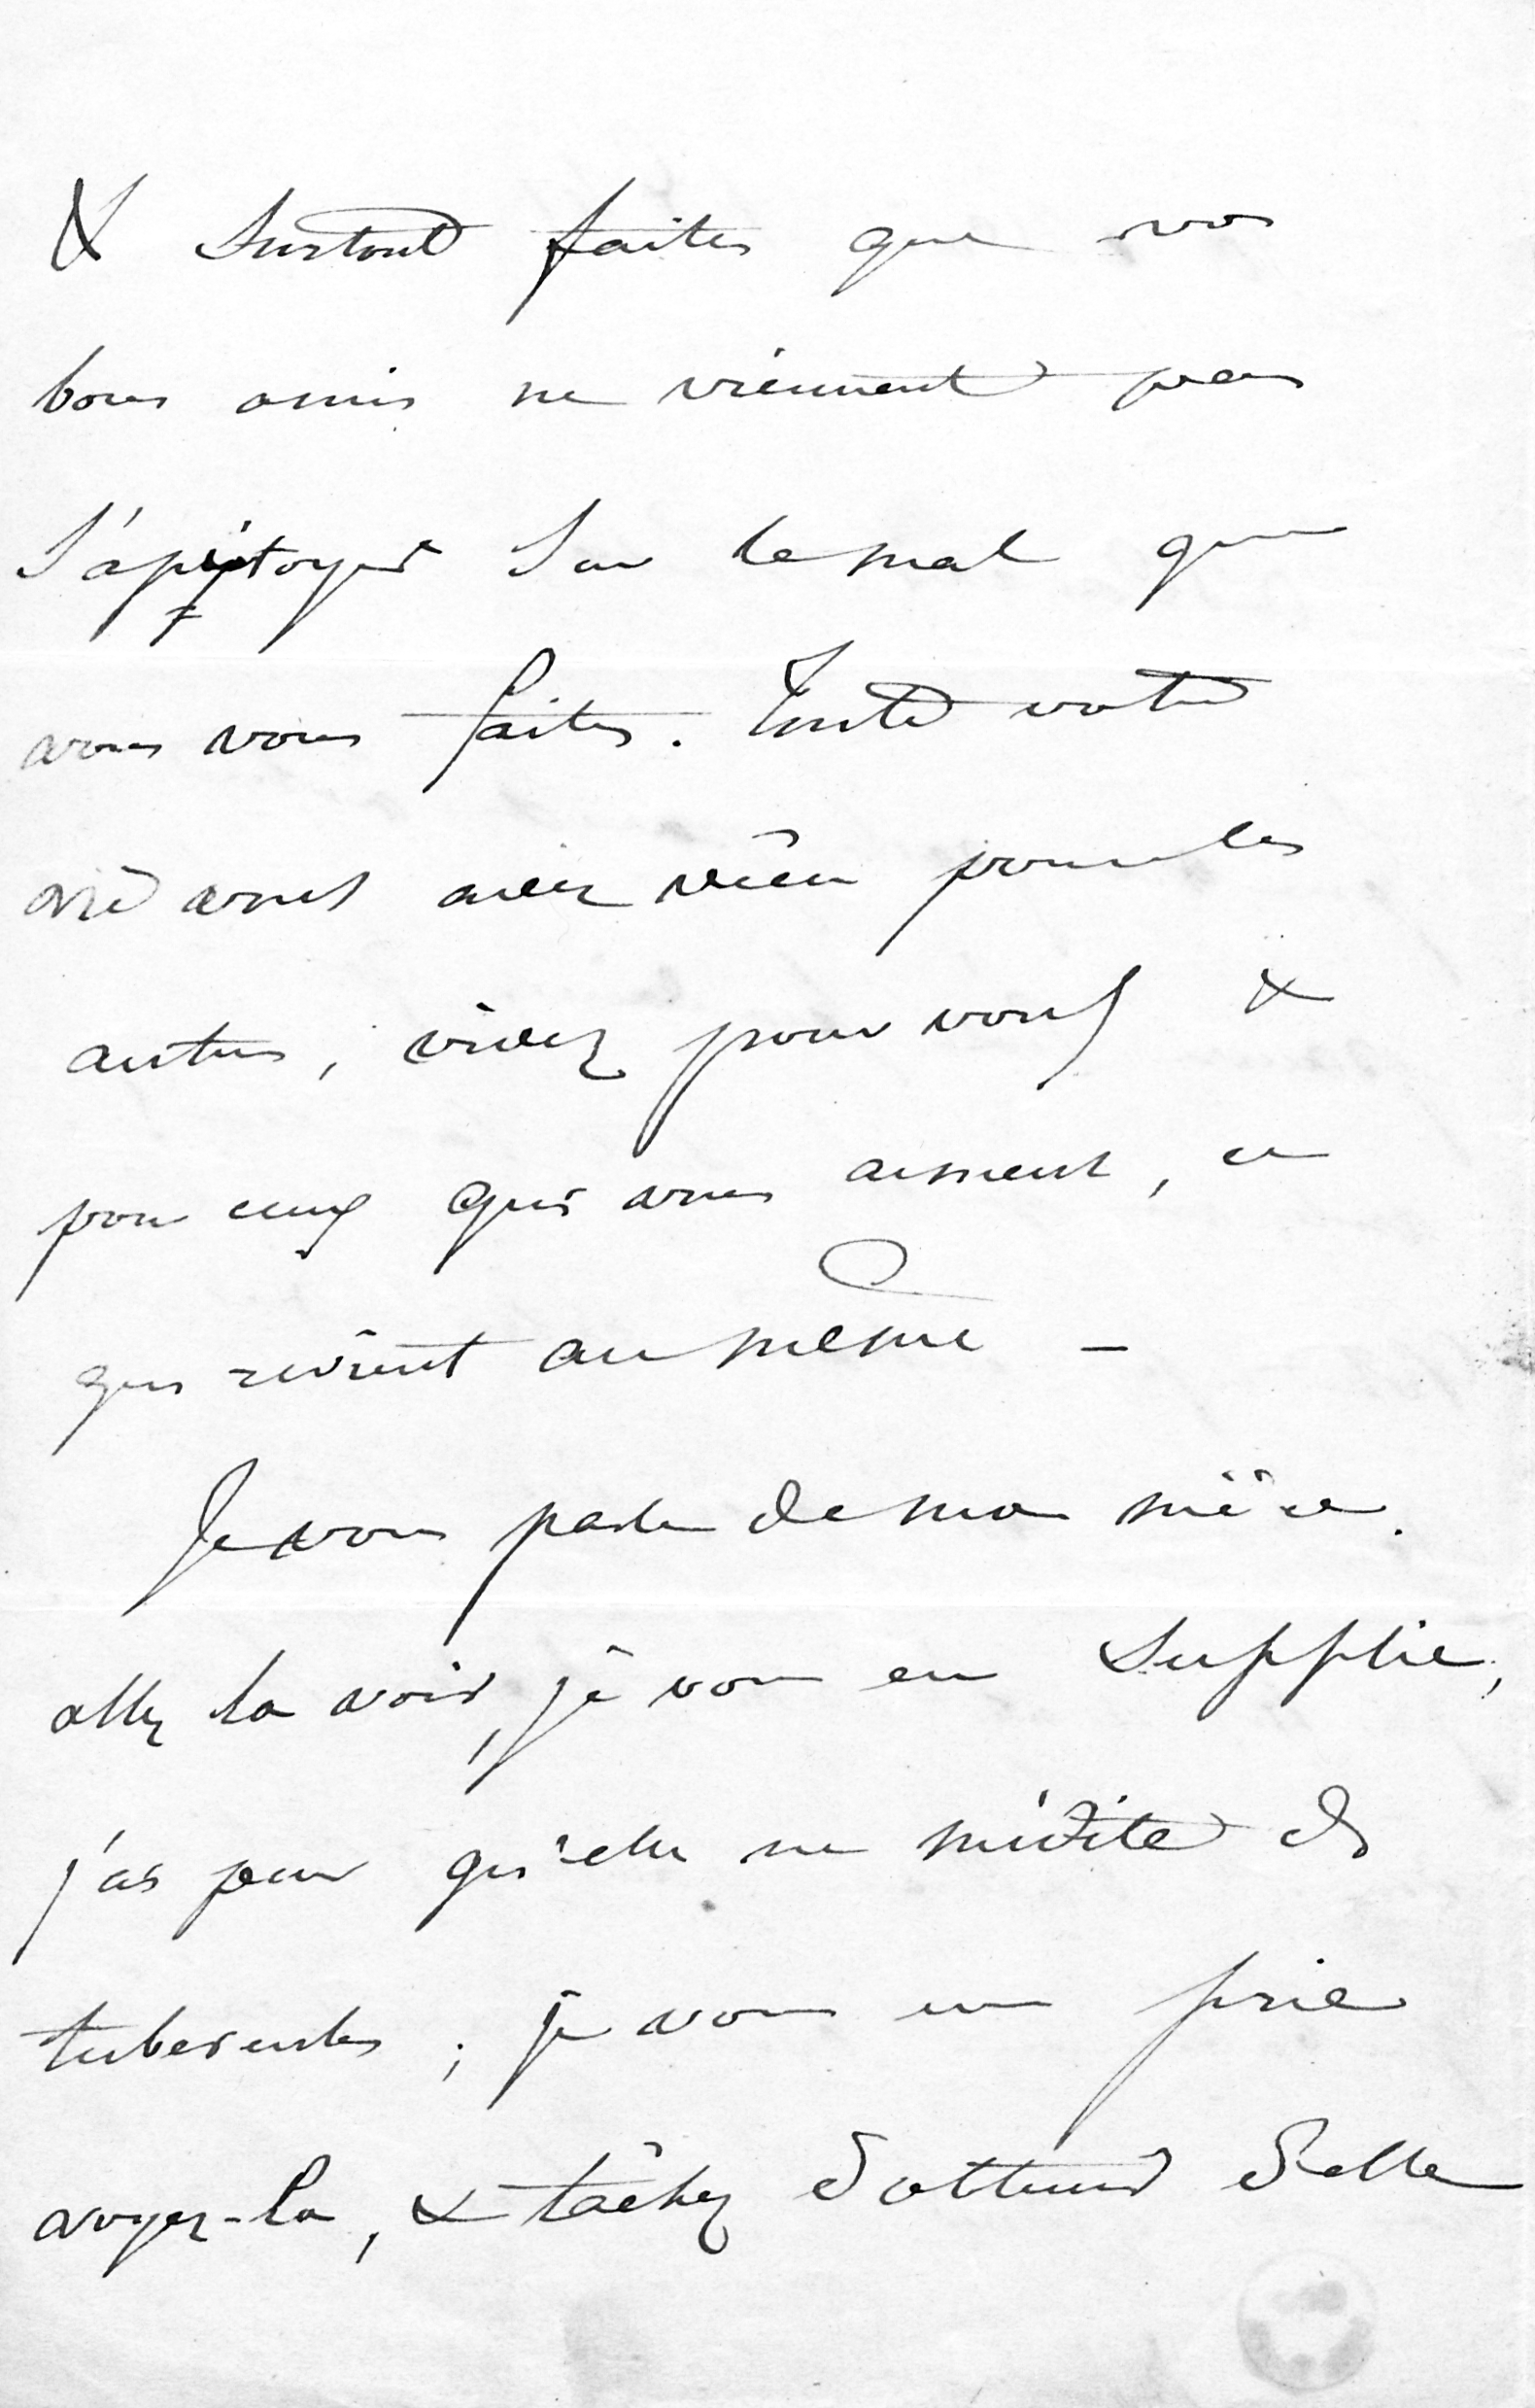 & surtout faites que vos
bons amis ne viennent pas
s'apitoyer sur le mal que
vous vous faites. Toute votre
vie vous avez vécu pour les
autres, vivez pour vous &
pour ceux qui vous aiment, ce
qui revient au même —
Je vous parle de ma mère.
allez la voir, je vous en supplie,
j'ai peur qu'elle ne médite des
; je vous en prie
voyez-la, & tâchez d'obtenir d'elle